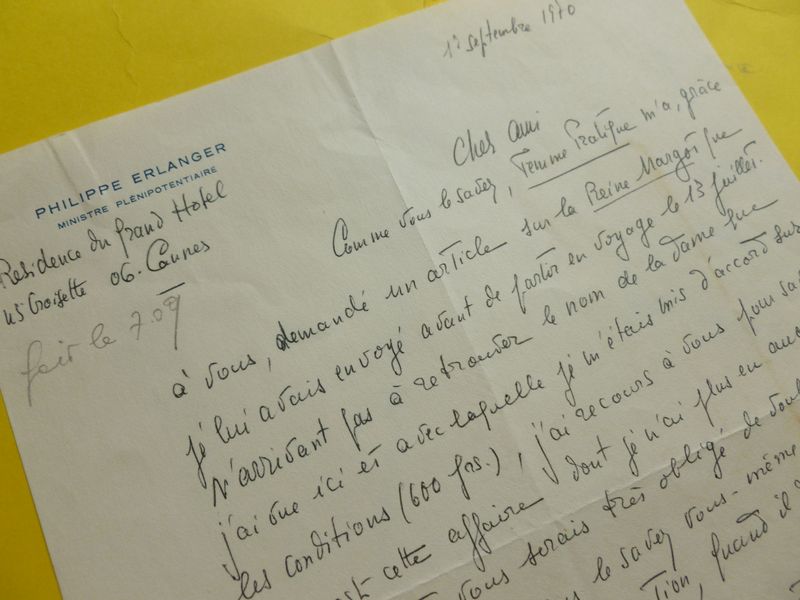 1er septembre 1970
PHILIPPE ERLANGER
MINISTRE PLÉNIPOTENTIAIRE
Residence du Grand Hotel
45 Croisette 06. Cannes
fait le 7.09
Cher Ami
Comme vous le savez, Femme Pratique m'a, grâce
à vous, demandé un article sur la Reine Margot que
je lui avais envoyé avant de partir en voyage le 13 juillet.
N'arrivant pas à retrouver le nom de la dame que
j'ai vue ici et avec laquelle je m'étais mis d'accord sur
les conditions (600 frs.), j'ai recours à vous pour
cette affaire dont je n'ai plus en
vous serais très obligé de
le savez vous-même
quand il